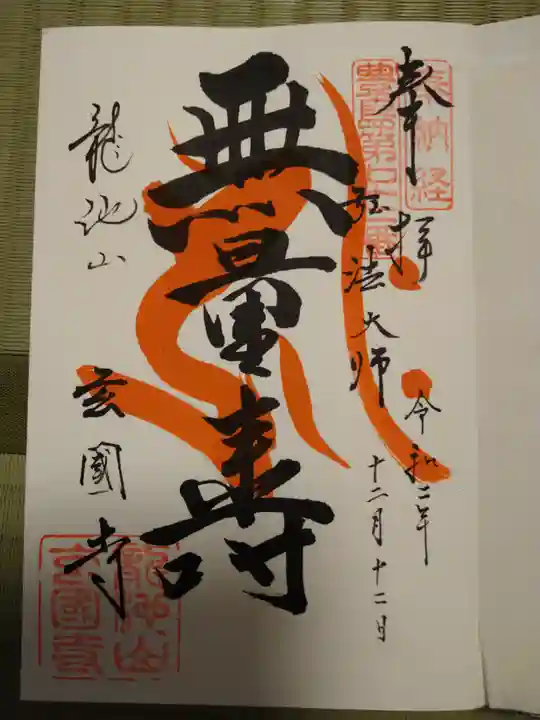 奉拝
奉納経
令和二年
十二月十二日
弘法大師
無量壽
龍池山
玄國寺
龍池山
玄國寺